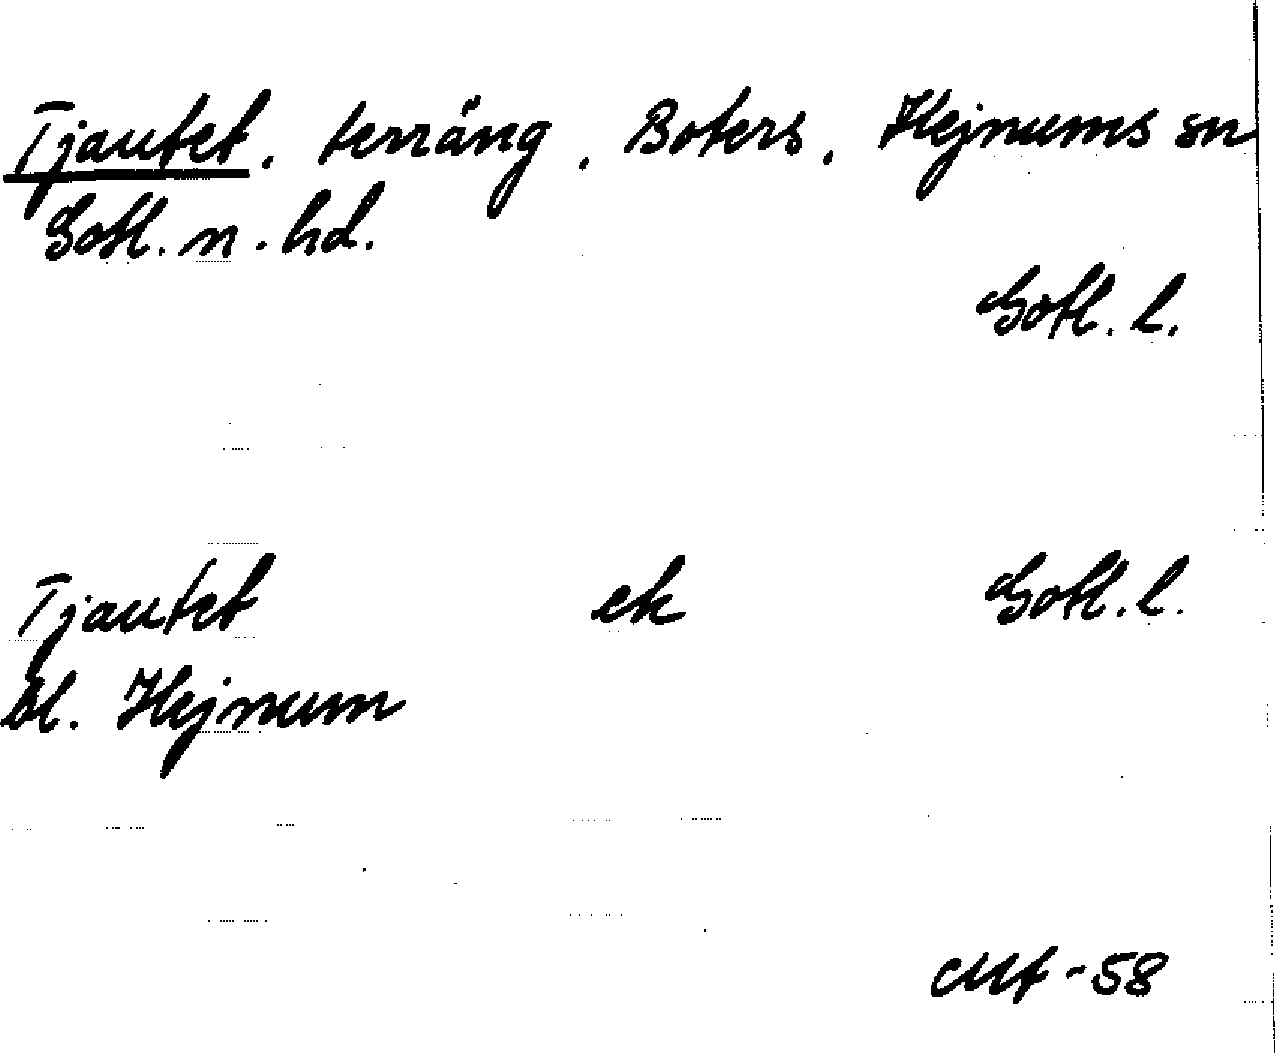 Tjautet, terräng, Boters, Hejnums sn
Gotl. n. hd.
Gotl. l.
Tjautet ek Gotl. l.
bl. Hejnum
-58